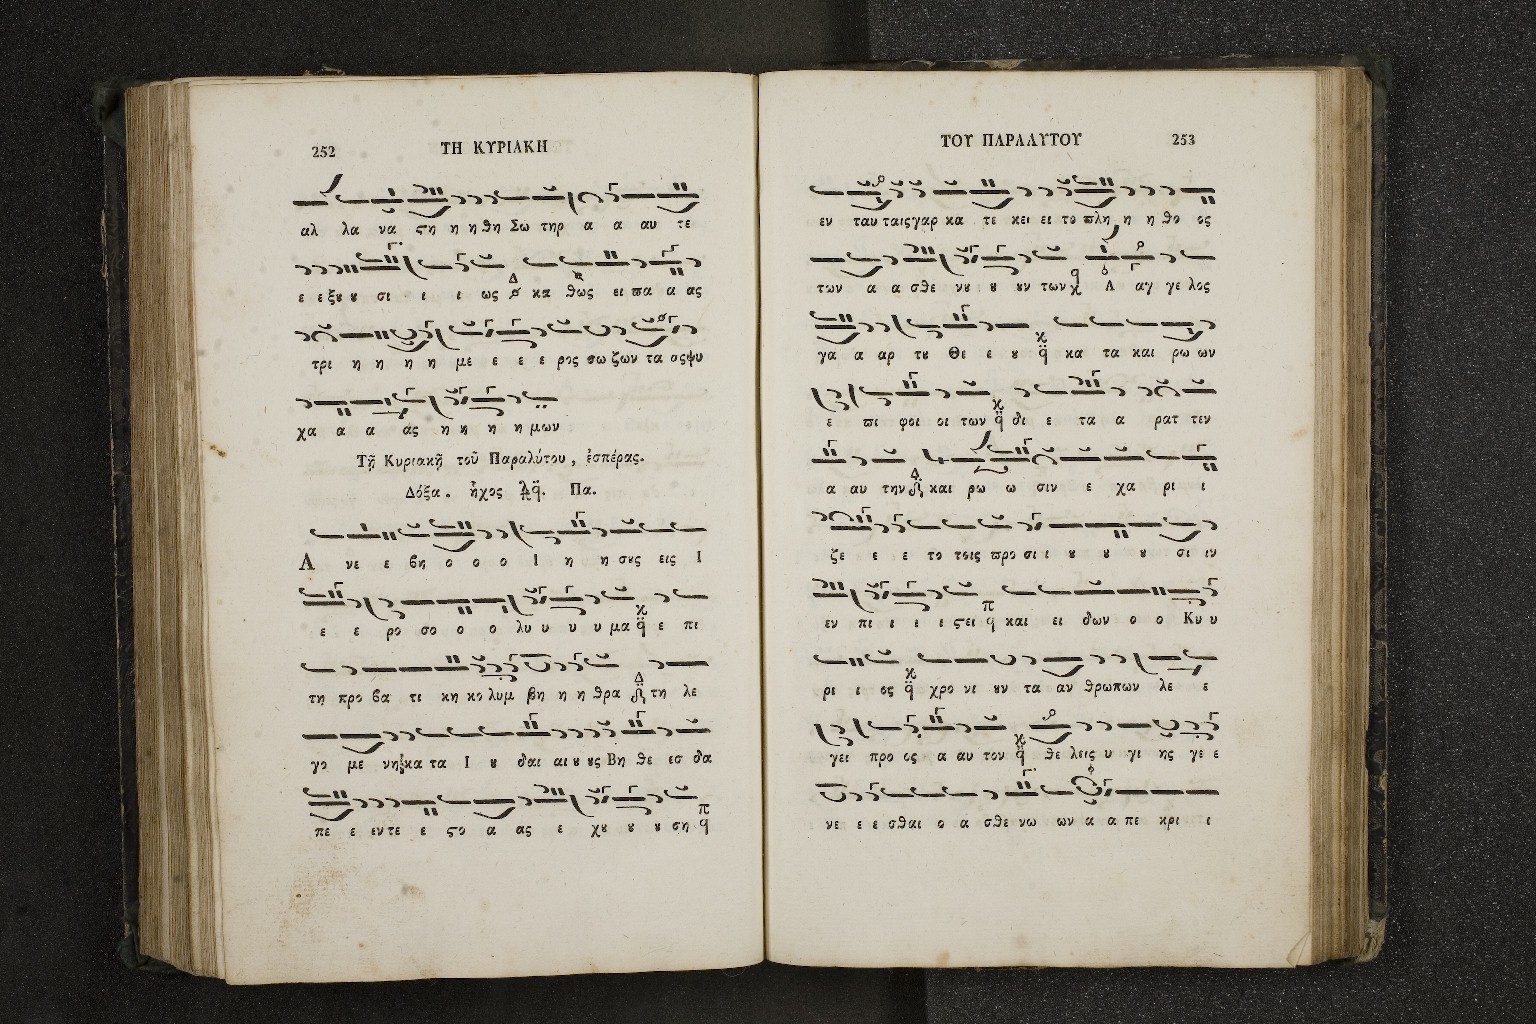 252 ΤΗ ΚΥΡΙΑΚΗ
αλ λα να ϛη η η θη Σω τηρ α α αυ τε
ε ε ξȣ ȣ σι ι ι ως κα θως ει πα α ας
τρι η η η η με ε ε ε ρος σω ζων τα ας ψυ
χα α α ας η η η η μων
Τῇ Κυριακῇ τοῦ Παραλύτου, ἑσπέρας.
Δόξα. ἦχος Πα.
Α νε ε βη ο ο ο Ι η η σȣς εις Ι
ε ε ρο σο ο ο λυ υ υ υ μα ε πι
τη προ βα τι κη κο λυμ βη η η θρα τη λε
γο με νη κα τα Ι ȣ δαι αι ȣ ȣς Βη θε εσ δα
πε ε εν τε ε ϛο α ας ε χȣ ȣ ȣ ση
ΤΟΥ ΠΑΡΑΛΥΤΟΥ 253
εν ταυ ταις γαρ κα τε κει ει το πλη η η θο ος
των α α σθε νȣ ȣ ȣν των Α αγ γε λος
γα α αρ τȣ Θε ε ȣ κα τα και ρω ων
ε πι φοι οι των δι ε τα α ρατ τεν
α αυ την και ρω ω σιν ε χα ρι ι
ζε ε ε το τοις προ σι ι ȣ ȣ ȣ σι ιν
εν πι ι ι ι ϛει και ει δων ο ο Κυ υ
ρι ι ος χρο νι ȣν τα αν θρωπων λε ε
γει προ ος α αυ τον θε λεις υ γι ης γε ε
νε ε ε σθαι ο α σθε νω ων α α πε κρι ι